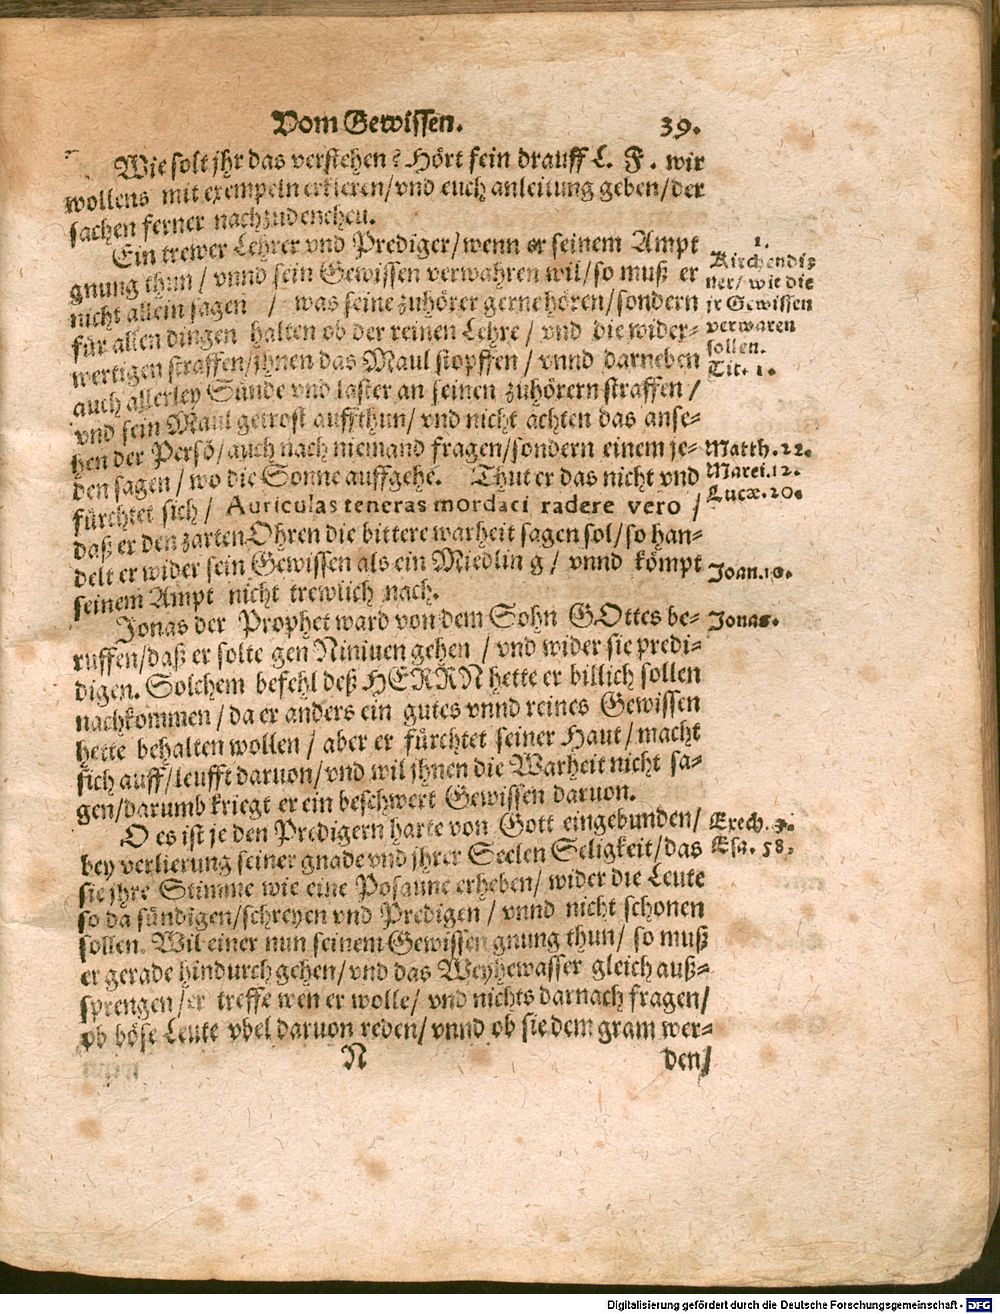 Vom Gewissen. 39.
Wie solt jhr das verstehen? Hört fein drauff L. F. wir
wollens mit exempeln erkleren/vnd euch anleitung geben/der
sachen ferner nachzudencken.
Ein trewer Lehrer vnd Prediger/wenn er seinem Ampt
gnung thun/vnnd sein Gewissen verwahren wil/so muß er
nicht allein sagen / was seine zuhörer gerne hören/sondern
für allen dingen halten ob der reinen Lehre/vnd die wider-
wertigen straffen/jhnen das Maul stopffen/vnnd darneben
auch allerley Sünde vnd laster an seinen zuhörern straffen/
vnd sein Maul getrost auffthun/vnd nicht achten das anse-
hen der Persõ/auch nach niemand fragen/sondern einem je-
den sagen/wo die Sonne auffgehe. Thut er das nicht vnd
fürchtet sich/ Auriculas teneras mordaci radere vero /
daß er den zarten Ohren die bittere warheit sagen sol/so han-
delt er wider sein Gewissen als ein Miedling/vnnd kömpt
seinem Ampt nicht trewlich nach.
Jonas der Prophet ward von dem Sohn GOttes be-
ruffen/daß er solte gen Niniuen gehen/vnd wider sie predi-
digen. Solchem befehl deß HERRN hette er billich sollen
nachkommen/da er anders ein gutes vnnd reines Gewissen
hette behalten wollen/aber er fürchtet seiner Haut/macht
sich auff/leufft daruon/vnd wil jhnen die Warheit nicht sa-
gen/darumb kriegt er ein beschwert Gewissen daruon.
O es ist je den Predigern harte von Gott eingebunden/
bey verlierung seiner gnade vnd jhrer Seelen Seligkeit/das
sie jhre Stimme wie eine Posaune erheben/wider die Leute
so da sündigen/schreyen vnd Predigen/vnnd nicht schonen
sollen. Wil einer nun seinem Gewissen gnung thun/so muß
er gerade hindurch gehen/vnd das Weyhewasser gleich auß-
sprengen/er treffe wen er wolle/vnd nichts darnach fragen/
ob böse Leute vbel daruon reden/vnnd ob sie dem gram wer-
N den/
1.
Kirchendie-
ner/wie die
jr Gewissen
verwaren
sollen.
Tit. 1.
Matth. 22.
Marci. 12.
Lucæ. 20.
Joan. 10.
Jonas.
Ezech. 3.
Esa. 58.
Digitalisierung gefördert durch die Deutsche Forschungsgemeinschaft - DFG